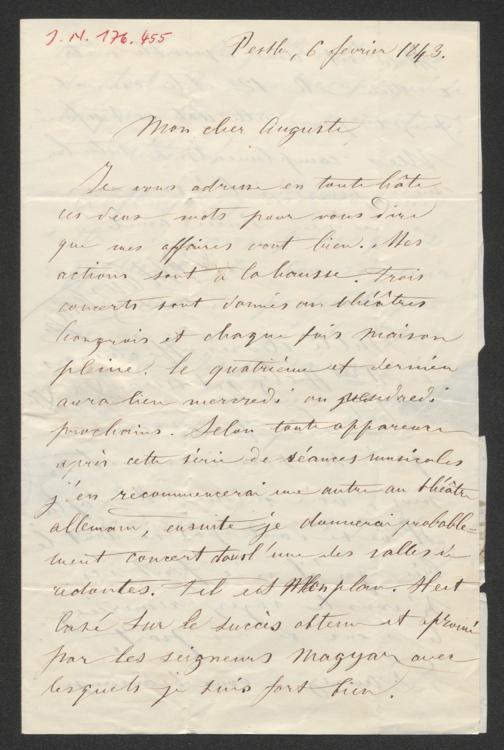 J. N. 176.455
Pesth, 6 fevrier 1843.
Mon cher Auguste
Je vous adresse en toute hâte
ces deux mots pour vous dire
que mes affaires vont bien. Mes
actions sont à la hausse. Trois
concerts sont donnés au théâtres
hongrois et chaque fois maison
pleine. Le quatrième et dernier
aura lieu mercredi ou vendredi
prochains. Selon toute apparence
après cette série de séances musicales
j'en recommencerai une autre au théâtre
allemam, ensuite je donnerai probable-
ment concert dans l'une des salles de
redoutes. Tel est Mon plan. Il est
basé sur le succès obtenu et
par les seigneurs Magyar avec
lesquels je suis fort bien.